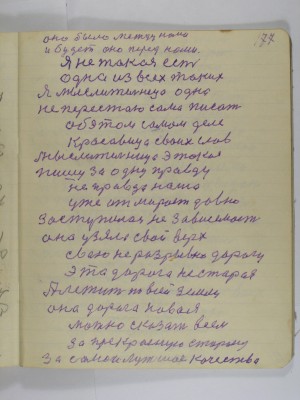 оно было между нама
и будет оно перед нами.
77
Я не такая ест
одна из всех таких
Я мыслителница одна
не перестаю сама писат
об ятом самом деле
Красавица своих слов
мыслителница этокая
пишу за одну правду
не правда наша
уже от мирает давно
Заступилас не зависимост
она узяла свой верх
свою неразривно дорогу
Эта дорога нестарая
А летит по всей Земли
она дорога новая
можно сказат всем
за прекрасную сторону
За самой лутшое качества